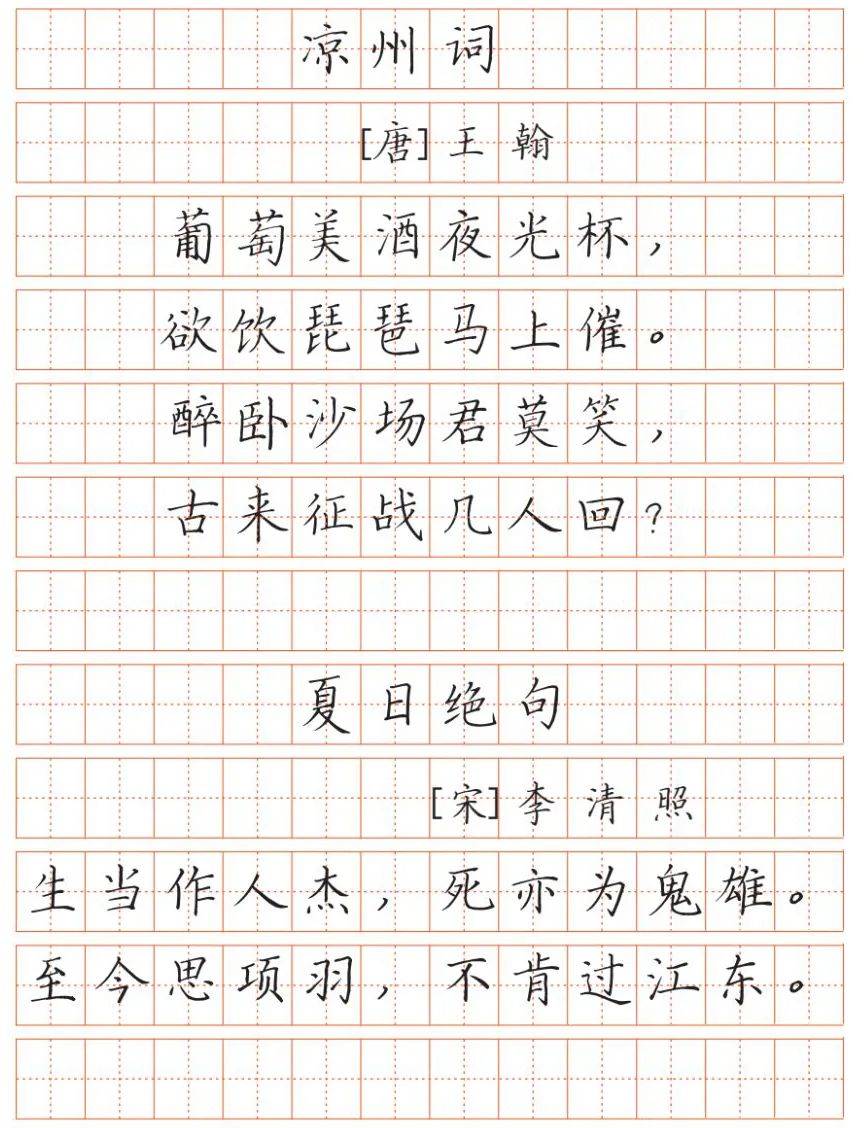 凉州词
[唐]王翰
葡萄美酒夜光杯，
欲饮琵琶马上催。
醉卧沙场君莫笑，
古来征战几人回？
夏日绝句
[宋]李清照
生当作人杰，死亦为鬼雄。
至今思项羽，不肯过江东。